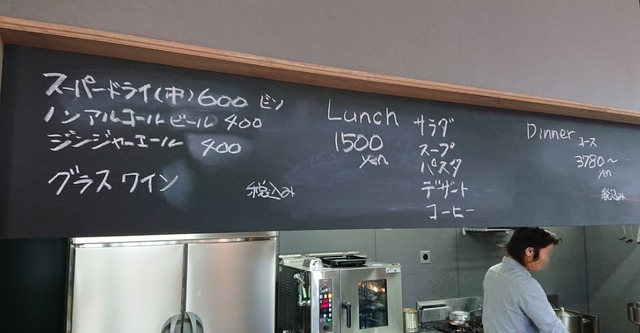 スーパードライ(中) 600 ビン
ノンアルコールビール 400
ジンジャーエール 400
グラスワイン
税込み
Lunch
1500
yen
サラダ
スープ
パスタ
デザート
コーヒー
Dinner
コース
3780〜
yen
税込み